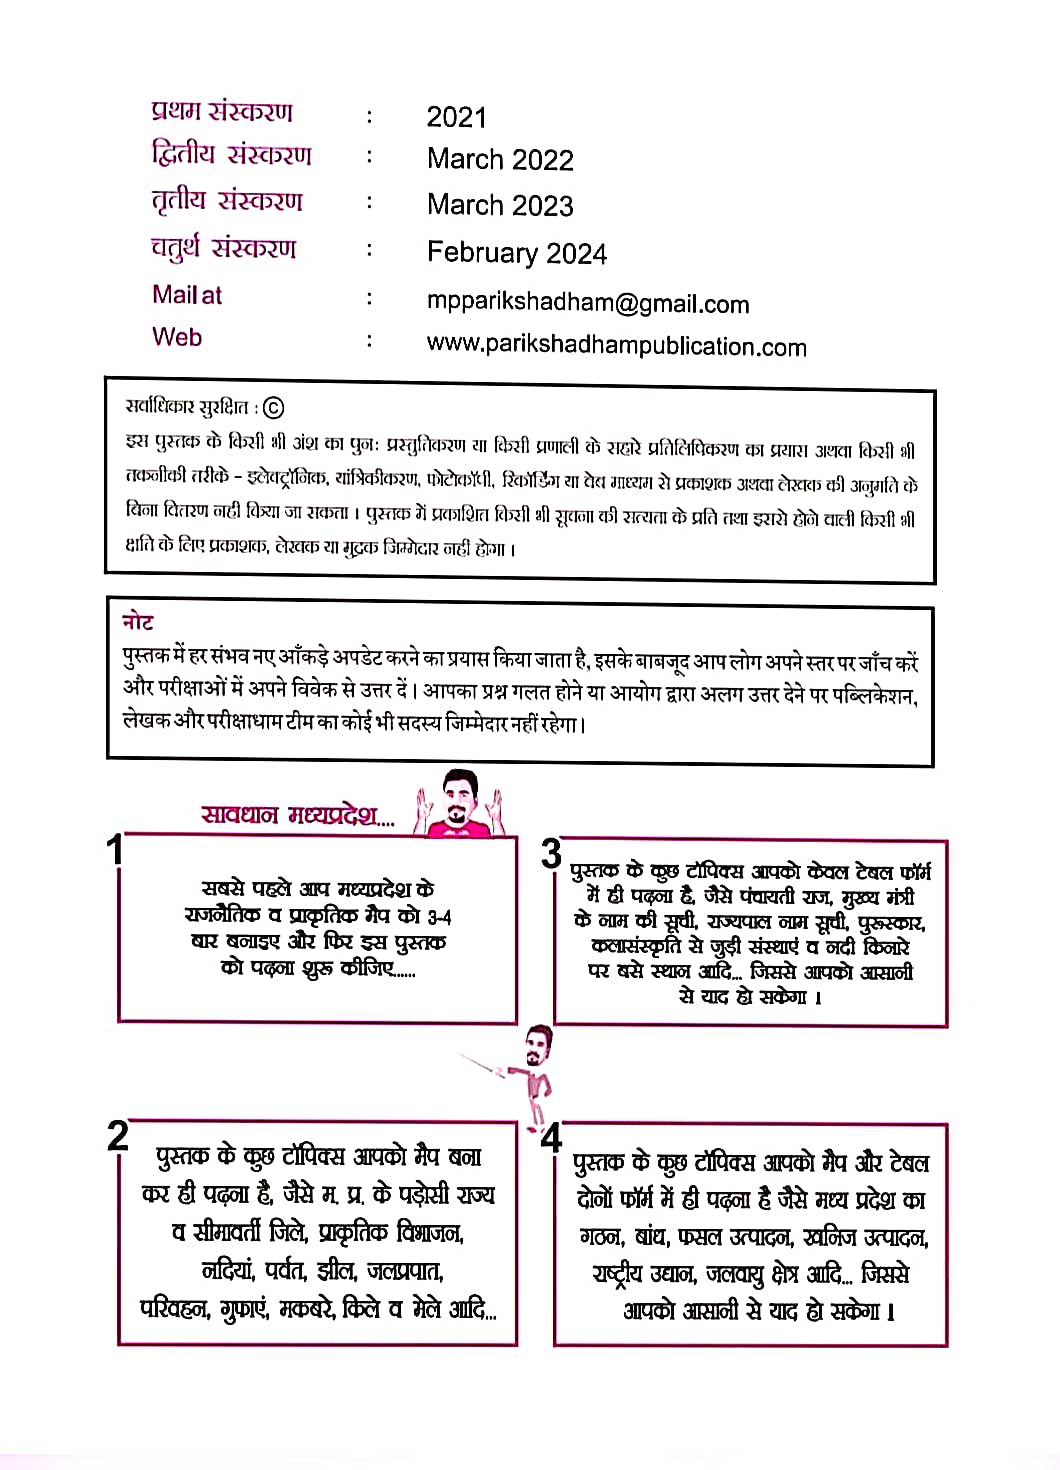 प्रथम संस्करण : 2021
द्वितीय संस्करण : March 2022
तृतीय संस्करण : March 2023
चतुर्थ संस्करण : February 2024
Mail at : mpparikshadham@gmail.com
Web : www.parikshadhampublication.com
सर्वाधिकार सुरक्षित : ©
इस पुस्तक के किसी भी अंश का पुनः प्रस्तुतिकरण या किसी प्रणाली के सहारे प्रतिलिपिकरण का प्रयास अथवा किसी भी
तकनीकी तरीके - इलेक्ट्रॉनिक, यांत्रिकीकरण, फोटोकॉपी, रिकॉर्डिंग या वेब माध्यम से प्रकाशक अथवा लेखक की अनुमति के
बिना वितरण नहीं किया जा सकता । पुस्तक में प्रकाशित किसी भी सूचना की सत्यता के प्रति तथा इससे होने वाली किसी भी
क्षति के लिए प्रकाशक, लेखक या मुद्रक जिम्मेदार नहीं होगा ।
नोट
पुस्तक में हर संभव नए आँकड़े अपडेट करने का प्रयास किया जाता है, इसके बाबजूद आप लोग अपने स्तर पर जाँच करें
और परीक्षाओं में अपने विवेक से उत्तर दें । आपका प्रश्न गलत होने या आयोग द्वारा अलग उत्तर देने पर पब्लिकेशन,
लेखक और परीक्षाधाम टीम का कोई भी सदस्य जिम्मेदार नहीं रहेगा ।
सावधान मध्यप्रदेश....
1
सबसे पहले आप मध्यप्रदेश के
राजनैतिक व प्राकृतिक मैप को 3-4
बार बनाइए और फिर इस पुस्तक
को पढ़ना शुरू कीजिए......
2
पुस्तक के कुछ टॉपिक्स आपको मैप बना
कर ही पढ़ना है, जैसे म. प्र. के पड़ोसी राज्य
व सीमावर्ती जिले, प्राकृतिक विभाजन,
नदियां, पर्वत, झील, जलप्रपात,
परिवहन, गुफाएं, मकबरे, किले व मेले आदि...
3
पुस्तक के कुछ टॉपिक्स आपको केवल टेबल फॉर्म
में ही पढ़ना है, जैसे पंचायती राज, मुख्य मंत्री
के नाम की सूची, राज्यपाल नाम सूची, पुरूस्कार,
कलासंस्कृति से जुड़ी संस्थाएं व नदी किनारे
पर बसे स्थान आदि... जिससे आपको आसानी
से याद हो सकेगा ।
4
पुस्तक के कुछ टॉपिक्स आपको मैप और टेबल
दोनों फॉर्म में ही पढ़ना है जैसे मध्य प्रदेश का
गठन, बांध, फसल उत्पादन, खनिज उत्पादन,
राष्ट्रीय उद्यान, जलवायु क्षेत्र आदि... जिससे
आपको आसानी से याद हो सकेगा ।